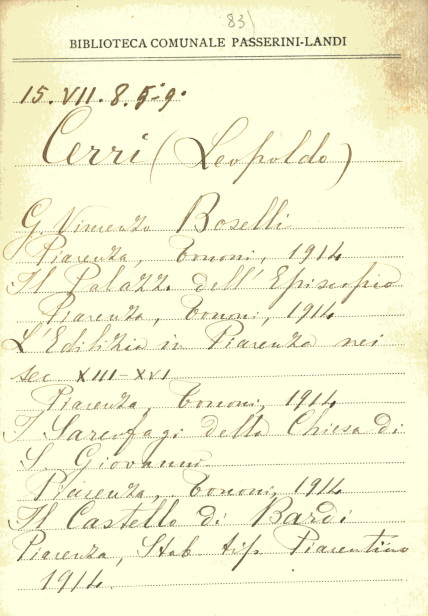 831
BIBLIOTECA COMUNALE PASSERINI-LANDI
15.VII.8.5-9.
Cerri (Leopoldo)
G. Vincenzo Boselli
Piacenza, Tononi, 1914
Il Palazz. dell'Episcopio
Piacenza, Tononi, 1914
L'Edilizia in Piacenza nei
sec XIII-XVI
Piacenza, Tononi, 1914
I Sarcofagi della Chiesa di
S. Giovanni
Piacenza, Tononi, 1914
Il Castello di Bardi
Piacenza, Stab tip. Piacentino
1914.